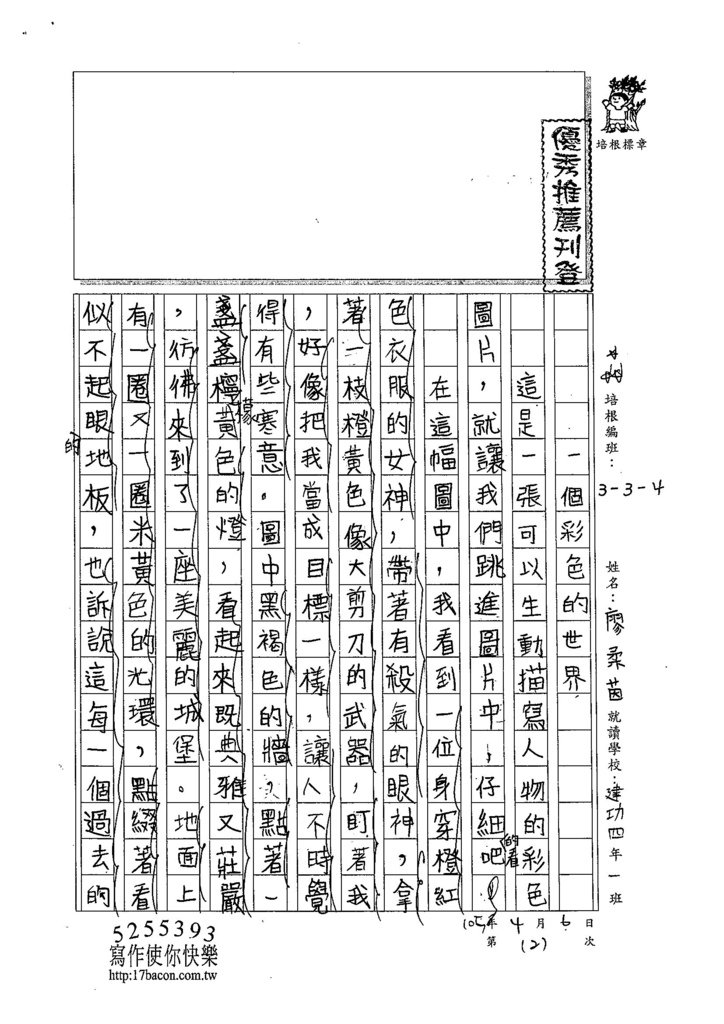 培根標章
優秀推薦刊登
培根編班：
3-3-4
姓名：廖柔茵
就讀學校：建功四年一班
105年4月6日
第(2)次
一個彩色的世界
這是一張可以生動描寫人物的彩色
圖片，就讓我們跳進圖片中，仔細的看吧！
在這幅圖中，我看到一位身穿橙紅
色衣服的女神，帶著有殺氣的眼神，拿
著一枝橙黃色像大剪刀的武器，盯著我
，好像把我當成目標一樣，讓人不時覺
得有些寒意。圖中黑褐色的牆，點著一
盞盞檸檬黃色的燈，看起來既典雅又莊嚴
，彷彿來到了一座美麗的城堡。地面上
有一圈又一圈米黃色的光環，點綴著看
似不起眼的地板，也訴說這每一個過去的
5255393
寫作使你快樂
http:17bacon.com.tw